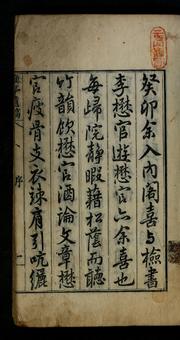 癸卯余入內閣喜与檢書
李懋官遊懋官亦余喜也
每歸院静暇藉松蔭而聽
竹韻飲懋官酒論文章懋
官瘦骨支衣竦肩引吭纚
序